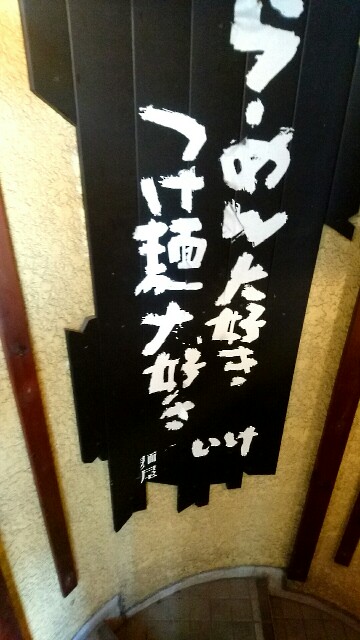 らーめん大好き
つけ麺大好き
いけ
麺屋